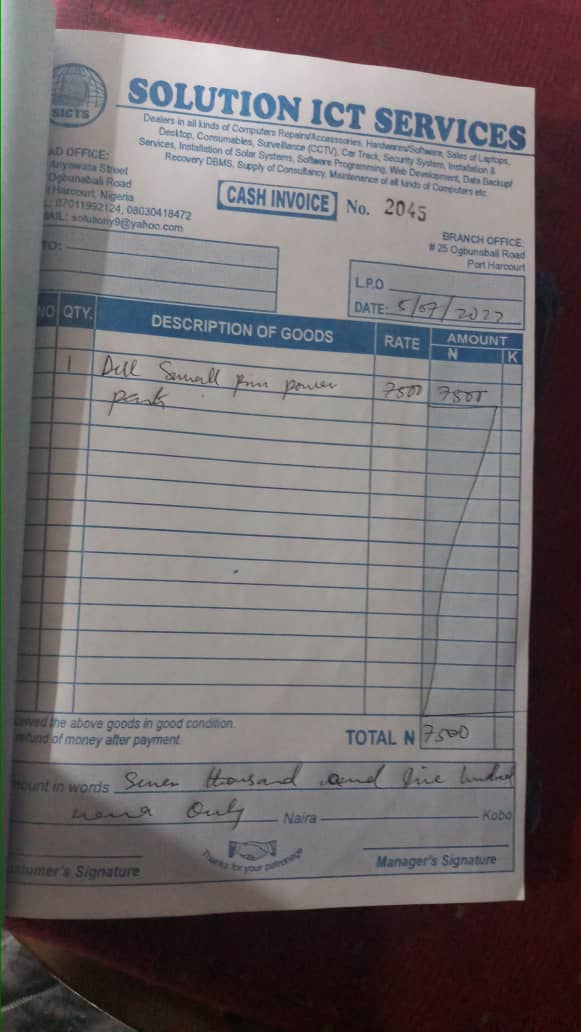 SICTS
SOLUTION ICT SERVICES
Dealers in all kinds of Computers Repairs/Accessories, Hardwares/Software, Sales of Laptops,
Desktop, Consumables, Surveillance (CCTV), Car Track, Security System, Installation &
Services, Installation of Solar Systems, Software Programming, Web Development, Data Backup/
Recovery DBMS, Supply of Consultancy, Maintenance of all kinds of Computers etc.
AD OFFICE:
Anyawata Street
Ogbunabali Road
Harcourt, Nigeria
: 07011992124, 08030418472
AIL: solutiony9@yahoo.com
CASH INVOICE No. 2045
BRANCH OFFICE:
# 25 Ogbunabali Road
Port Harcourt
TO:
L.P.O
DATE: 5/07/2022
NO QTY. DESCRIPTION OF GOODS RATE AMOUNT
N K
1 Dell Small pin power 7500 7500
pack
eived the above goods in good condition.
refund of money after payment.
TOTAL N 7500
ount in words Seven thousand and five hundred
naira Only Naira Kobo
Thanks for your patronage
stomer's Signature Manager's Signature